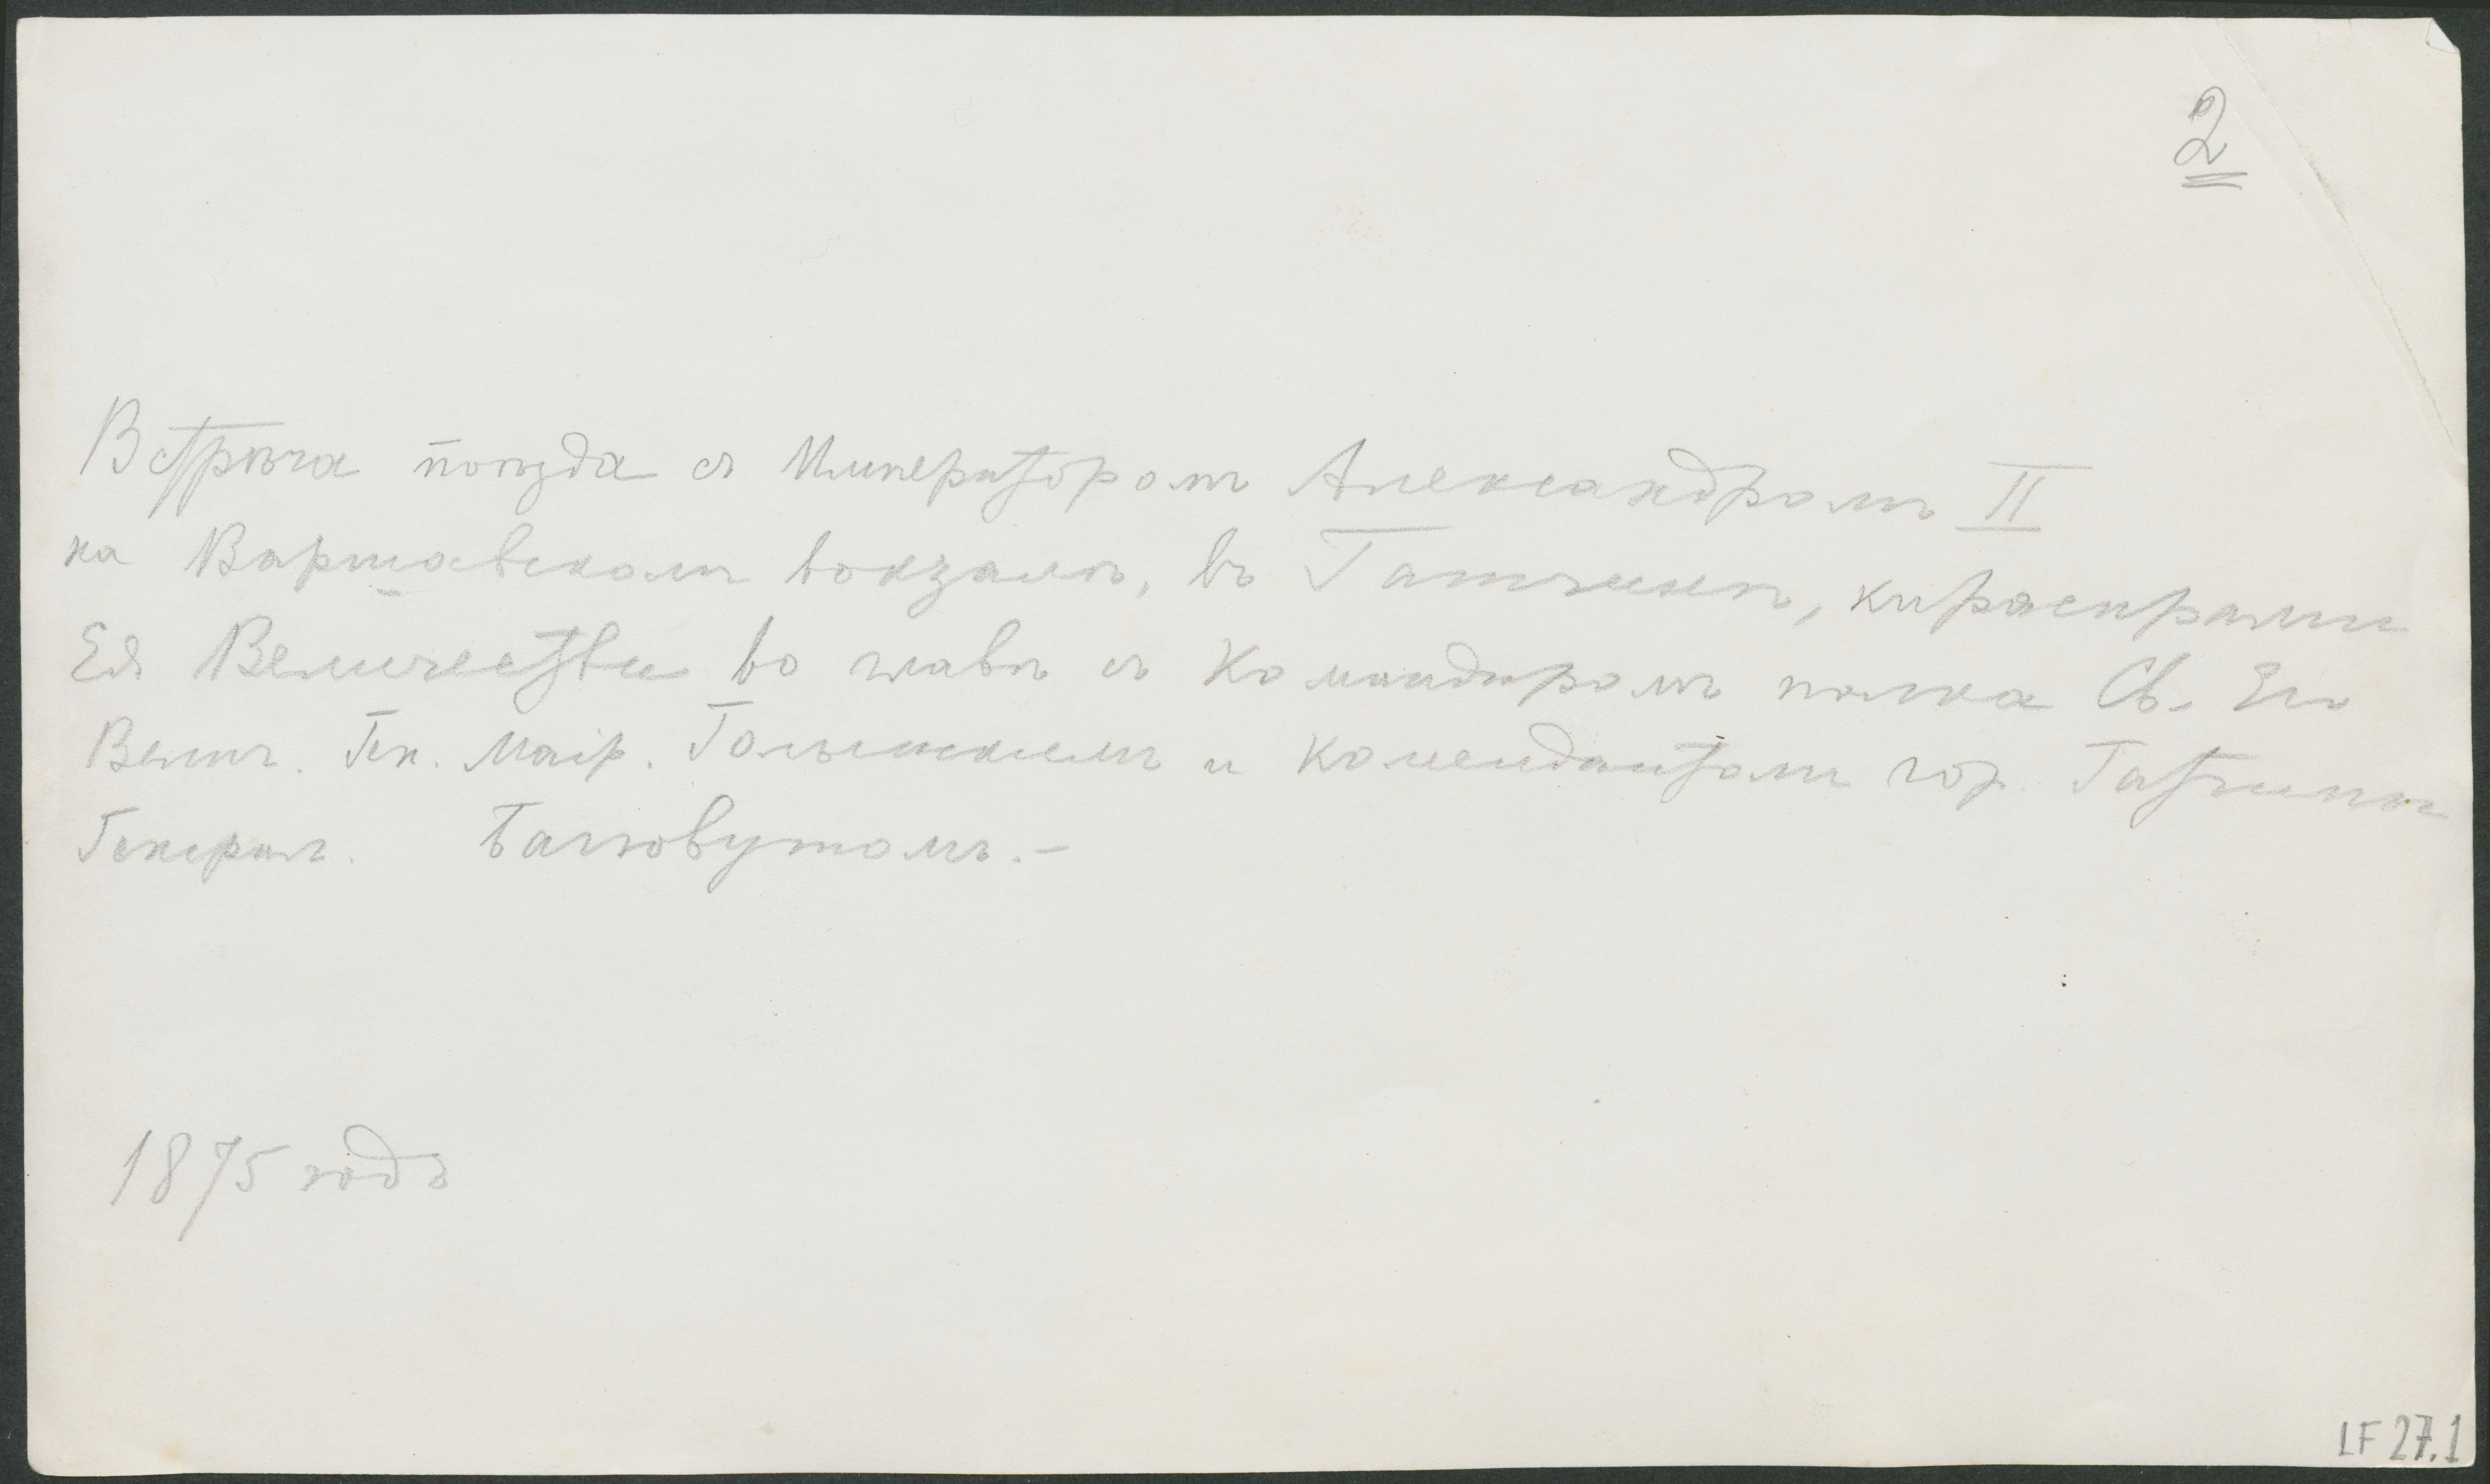 2
Встрѣча поѣзда съ Императоромъ Александромъ II
на Варшавскомъ вокзалѣ, въ Гатчинѣ, кирасирами
Ея Величества во главѣ съ Командиромъ полка Св. Его
Велич. Ген. Маіор. и комендантомъ гор. Гатчины
Генерал. Багговутомъ.-
1875 годъ
LF 27.1